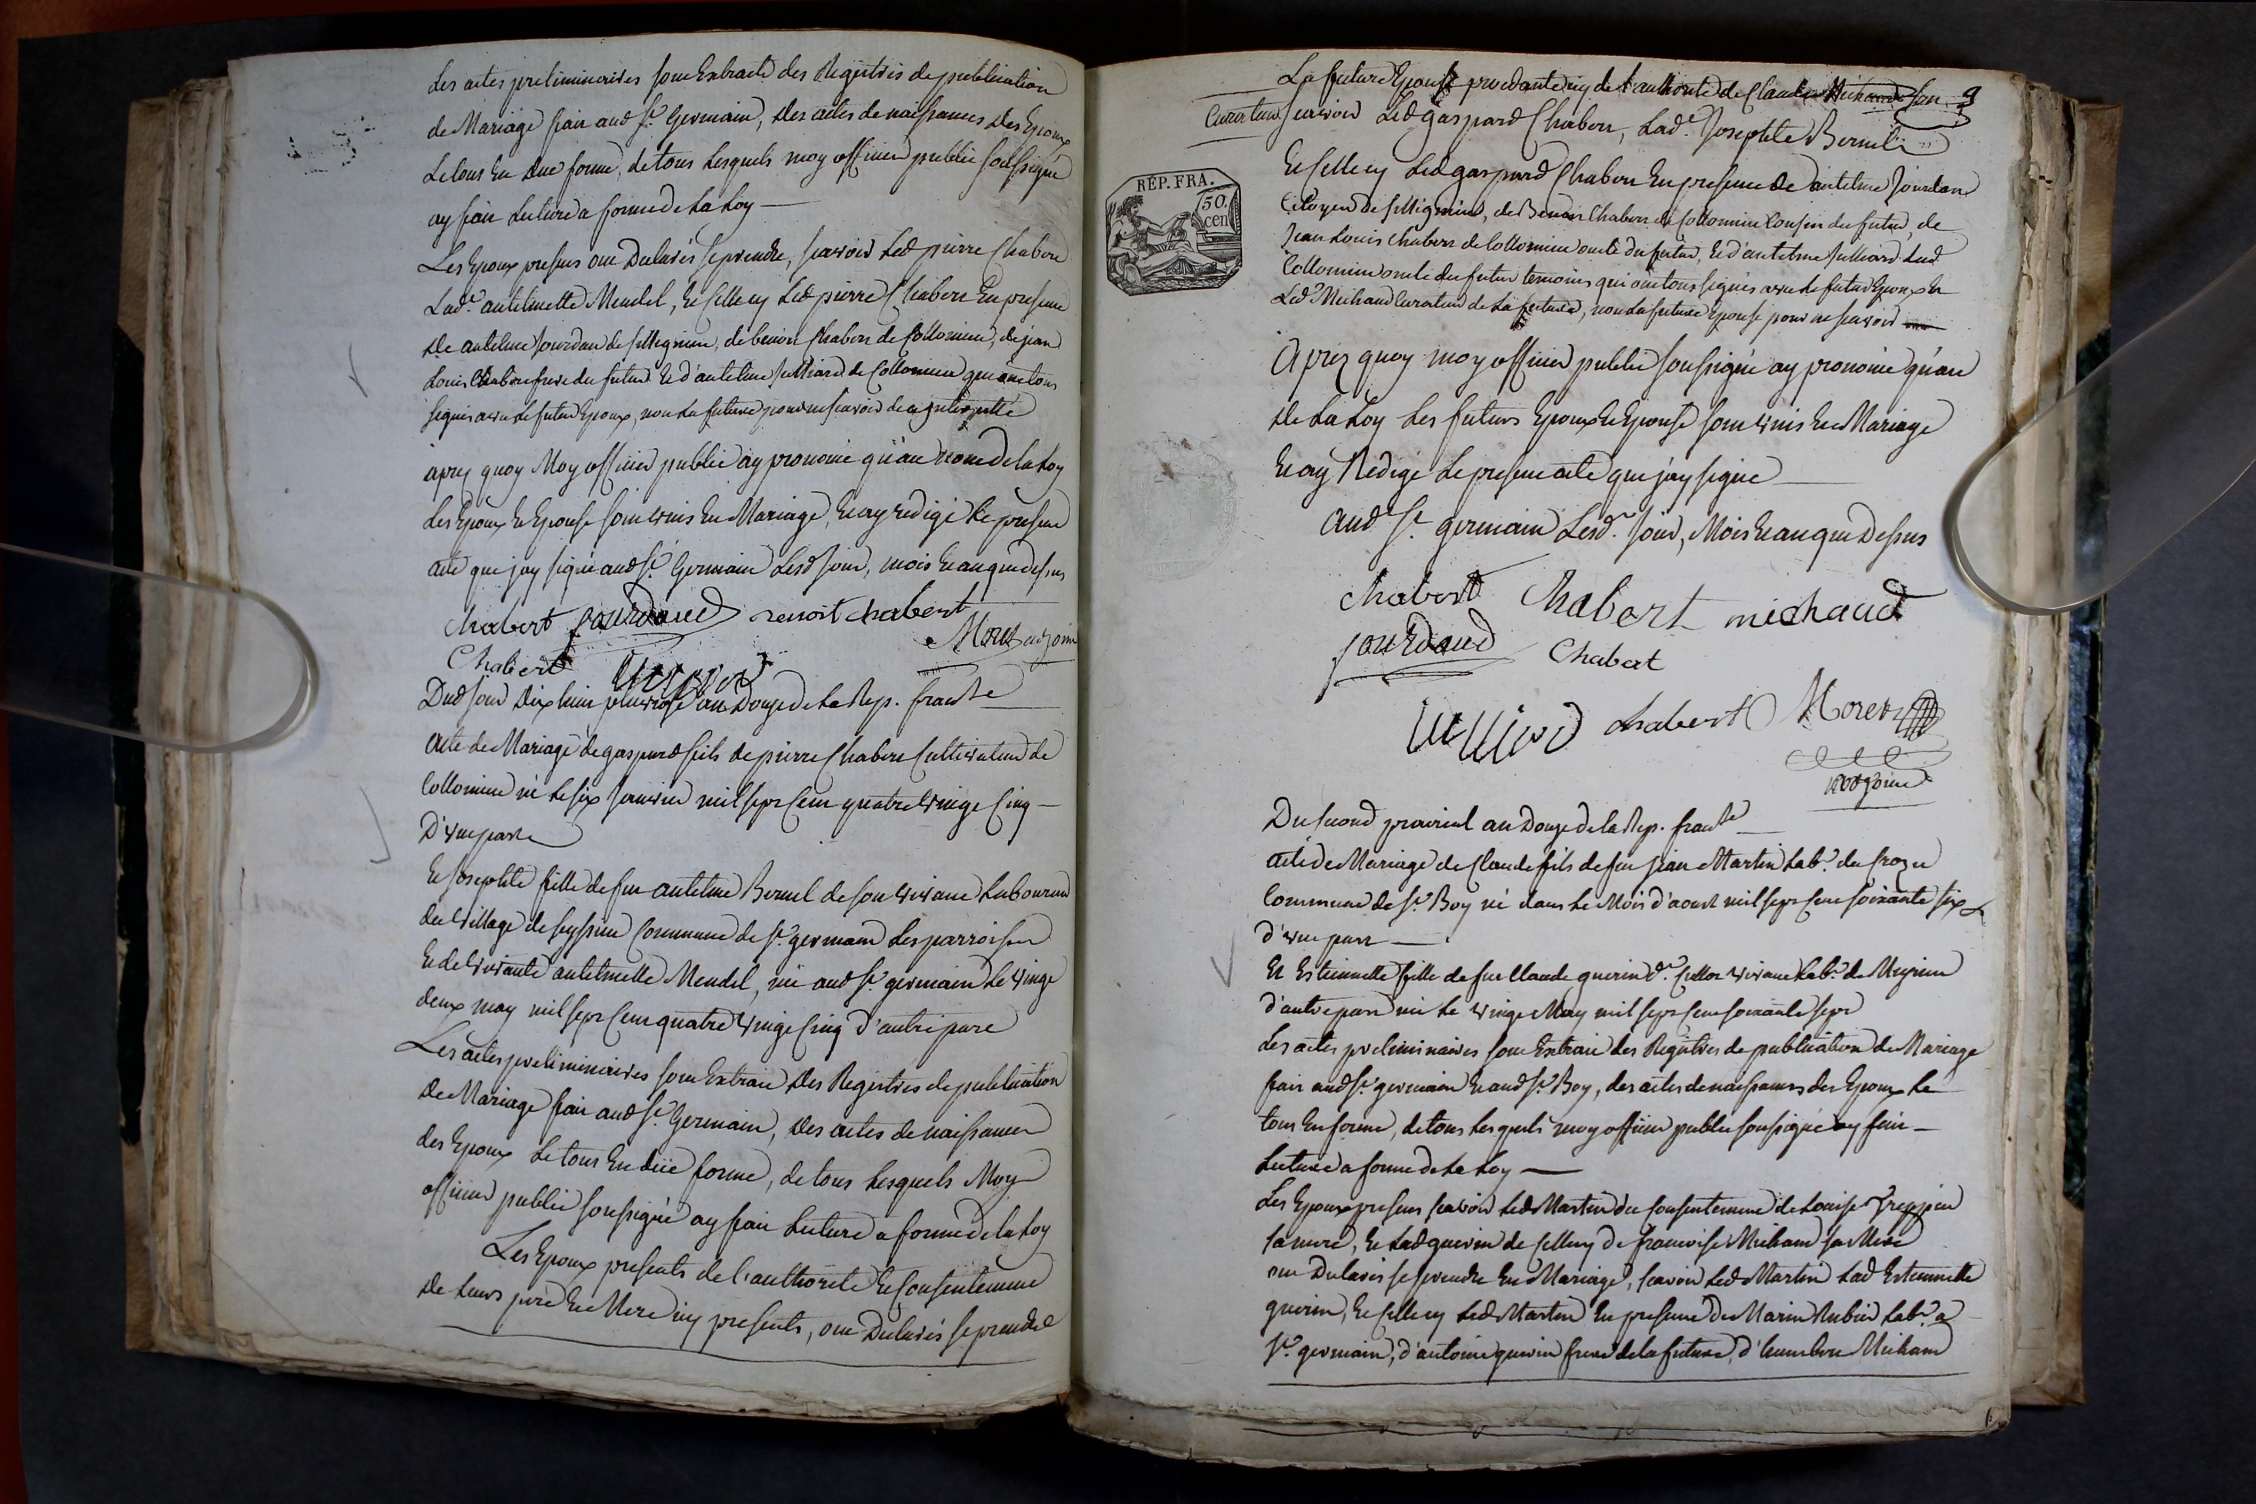 Les actes preliminaires sont Extraits des Registres de publication
de Mariage fait aud St Germain, Des actes de naissances Des Epoux
Le tout En Due forme, de tous Lesquels moy officier public soussigné
ay fait Lecture a forme de La Loy —
Les Epoux presens ont Declarés se prendre, scavoir Led pierre Chabert
Lad. antelmette Mendel, Et Celle cy Led pierre Chabert En presence
De antelme Jourdan de Sellignieu, de benoit Chabert de Collomieu, de jean
Louis Chabert frere du futur Et d'antelme Julliard de Collomieu qui ont tous
signés avec Le futur Epoux, non La future pour ne scavoir de ce
aprez quoy Moy officier public ay prononcé qu'au nom de la Loy
Les Epoux Et Epouse sont unis En Mariage, Et ay redigé Le present
acte que j'ay signé aud St Germain Lesd jour, mois Et an que dessus
Chabert Jourdand benoit chabert
Moret adjoint
Chabert
Dud jour Dix huit pluviose an Douze de La Rep. franse
acte de Mariage de gaspard fils de pierre Chabert Cultivateur de
Collomieu né Le six Janvier mil sept Cent quatre vingt Cinq —
D'une part
Et Josephte fille de feu antelme Bernel de son vivant Laboureur
du village de Seyssieu Commune de St germain Les parroisses
Et de vivante antelmette Mendel, née aud St germain Le vingt
deux may mil sept Cent quatre vingt Cinq d'autre part
Les actes preliminaires sont Extrait Des Registres de publication
De Mariage fait aud St. Germain, Des actes de naissances
des Epoux Le tout En düe forme, de tous Lesquels Moy
officier public soussigné ay fait Lecture a forme de la Loy
Les Epoux presents de l'authorité Et Consentement
De Leurs pere Et Mere icy presents, ont Declarés se prendre
La future Epouse procedante icy de l'authorité de Claude Michaud son 9
Curateur scavoir Led gaspard Chabert, Lad.e Josephte Bernel
Et Celle cy Led gaspard Chabert En presence de antelme Jourdan
Citoyen de Sellignieu, de Benoit Chabert de Collomieu Cousin du futur, de
Jean Louis Chabert de Collomieu oncle du futur, Et d'antelme Julliard dud
Collomieu oncle du futur temoins qui ont tous signés avec Le futur Epoux Et
Led. Michaud Curateur de La future, non La future Epouse pour ne scavoir
REP. FRA.
50
cen
Aprez quoy moy officier public soussigné ay prononcé qu'au
de La Loy Les futurs Epoux Et Epouse sont unis En Mariage
Et ay Redigé Le present acte que j'ay signé
aud St. germain Lesd. Jour, Mois Et an que Dessus
Chabert Chabert michaud
Jourdand Chabert
Chabert Moret
adjoint
Du second prairial an Douze de la Rep. franse
acte de Mariage de Claude fils de feu jean Martin Lab.r du
Commune de St. Boy né dans Le Mois d'aoust mil sept Cent soixante six
d'une part —
Et Estiennette fille de feu Claude guerin vivant Lab.r de Meyrieu
d'autre part née Le vingt May mil sept Cent soixante sept
Les actes preliminaires sont Extrait des Registres de publication de Mariage
fait aud St. germain Et aud St. Boy, des actes de naissances des Epoux Le
tout En forme, de tous Lesquels moy officier public soussigné ay fait —
Lecture a forme de La Loy —
Les Epoux presens scavoir Led Martin du Consentement de Louise
sa mere, Et Lad guerin de Celluy de francoise Michaud sa Mere
ont Declarés se prendre En Mariage, scavoir Led Martin Lad Estiennette
guerin, Et Celle cy Led Martin En presence de Marin Rubin Lab.r a
St. germain, d'antoine guerin frere de la future, d'humbert Michaud